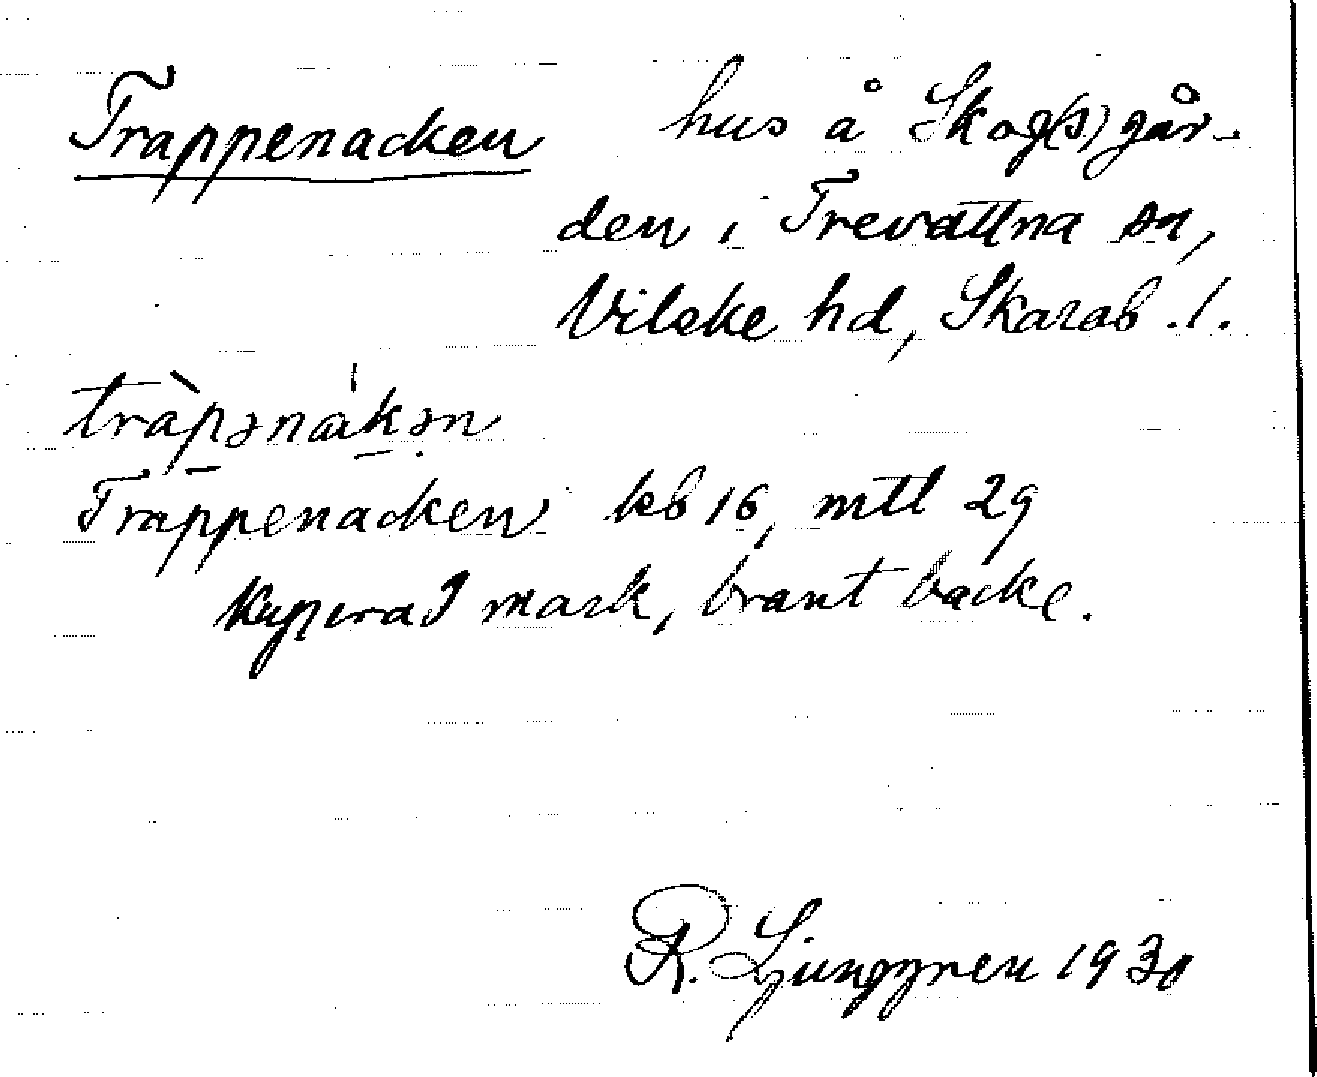 Trappenacken hus å Skog(s)går-
den i Trevattna sn,
Vilske hd, Skarab. l.
tràpənákən
Trappenacken kb 16, mtl 29
Kuperad mark, brant backe.
R. Ljunggren 1930